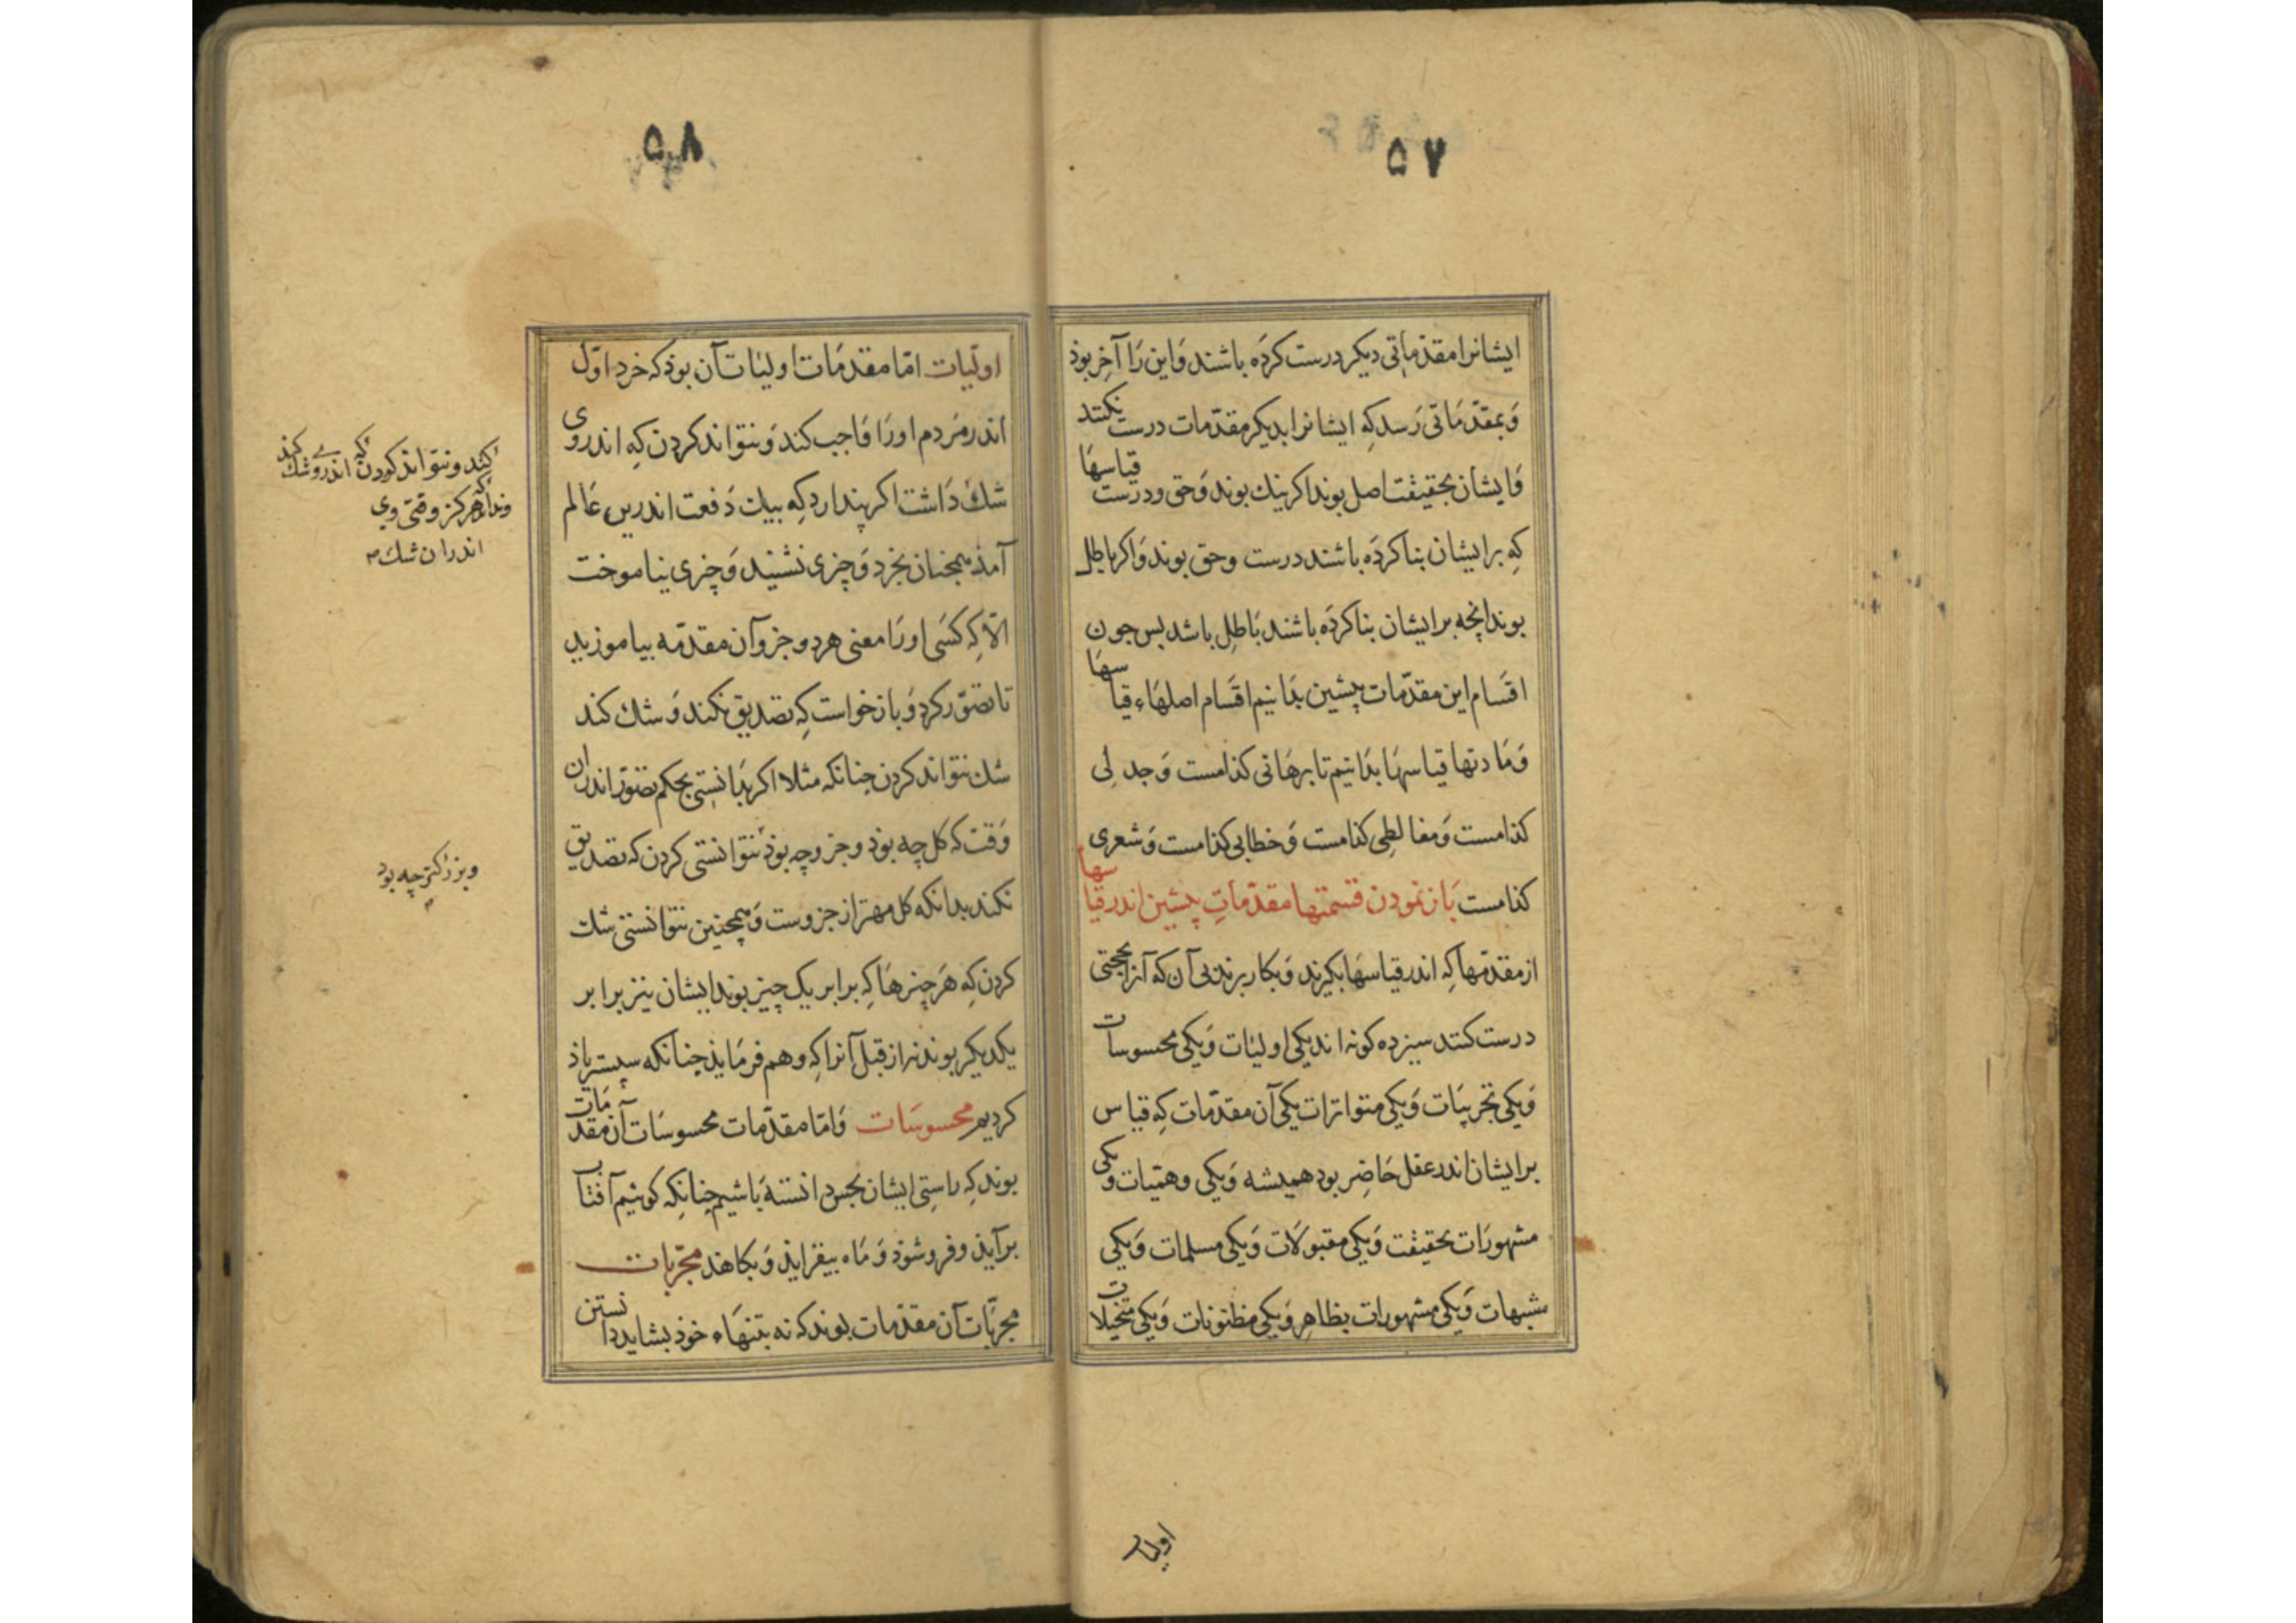 ۵۷
ایشانرا مقدّماتی دیکر درست کرده باشند وَاین رَا آخِر بوذ
وَبمقدّمَاتی رَسد کِه ایشانرا بدیکر مقدّمات درست نکنند
وَایشان بحقیقت اصل بوند اکر نیك بوند وَحق ودرست قیاسهَا
کِه بر ایشان بنا کردَه باشند درست وحق بوند وَاکر باطل
بوند انچه بر ایشان بنا کردَه باشند بَاطِل باشد پس جون
اقسَام این مقدّمات پیشین بدَانیم اقسَام اصلهَاء قیاسهَا
وَمَادتها قیاسهَا بدَانیم تا برهَانی کذامست وَجدلِی
کذامست وَمغالطِی کذامست وَخطابی کذامست وَشعری
کذامست بَاز نمودن قسمتها مقدّماتِ پیشین اندر قیاسها
از مقدّمهَا کِه اندر قیاسهَا بکیرند وَبکار برند بی آن که آنرا بحجتی
درست کنند سیزده کونه اند یکی اولیٰات وَیکی محسوسات
وَیکی تجربیَات وَیکی متواترات یکی آن مقدّمات کِه قیاس
بر ایشان اندر عقل حَاضِر بود همیشه وَیکی وهمیّات ویکی
مشهورَات بحقیقت وَیکی مقبولَات وَیکی مسلمات وَیکی
مشبهات وَیکی مشهورات بظاهِر وَیکی مظنونات وَیکی متخیلات
اولیات
۵۸
اولّیات امّا مقدمَات اولیٰات آن بوذ که خرد اوّل
اندر مَردم اورَا وَاجب کند وَنتواند کردن کِه اندروی
شك دَاشت اکر پندارد کِه بیك دَفعت اندرین عَالم
آمذ همچنان بخرد وَچیزی نشنید وَچیزی نیاموخت
الّا کِه کسَی اورَا معنی هر دو جزو آن مقدّمه بیاموزید
تا تصوّر کرد وَباز خواست کِه تصدیق نکند وَشك کند
شك نتواند کردن چنانکه مثلا اکر بدَانستی بحکم تصوّر اندران
وَقت که کل چه بوذ وجزو چه بوذ نتوانستی کردن که تصدیق
نکند بدانکه کل مهتر از جزوست وَهمچنین نتوانستی شك
کردن کِه هَر چیزهَا کِه برابر یک چیز بوند ایشان نیز برابر
یکدیکر بوند نه از قبل آنرا کِه وهم فرمَایذ چنانکه سپستر یاذ
کردیم محسوسَات وَامّا مقدّمات محسوسَات آن مقدّمات
بوند کِه راستِی ایشان بحس دانسته بَاشیم چنانکِه کوئیم آفتاب
بر آیذ وفرو شوذ وَمَاه بیفزایذ وَبکاهذ مجرّبات
مجرّبَات آن مقدّمات بوند که نه بتنهَاء خوذ بشاید دانستن
کند ونتواند کردن که اندروی شك کند
ونداند هرکز وقتی وی
اندران شك
وبزرکتر چه بود